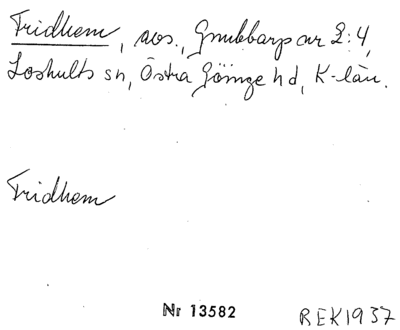 Fridhem, avs., Gnubbarp av 2:4,
Loshults sn, Östra Göinge hd, K-län.
Fridhem
Nr 13582 BEK1937